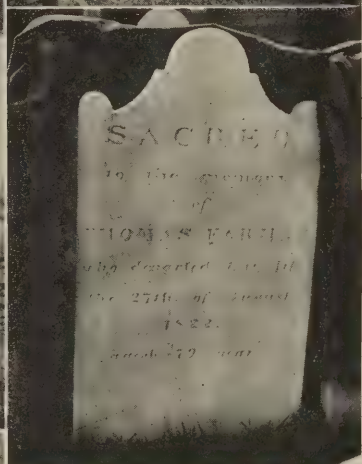 SACRED
to the memory
of
THOMAS
who departed this life
the 27th of August
1822.
aged 79 years